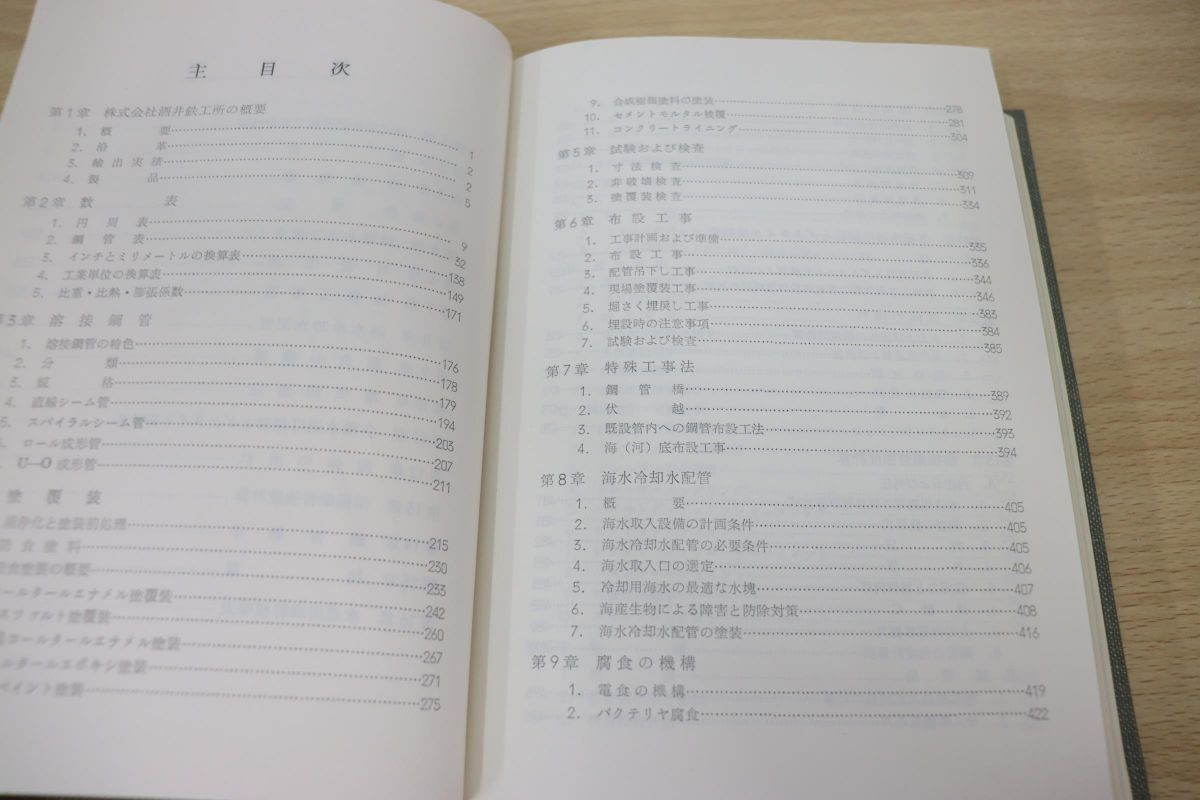 主 目 次
第1章 株式会社酒井鉄工所の概要
1. 概 要 1
2. 沿 革 2
3. 輸出実績 2
4. 製 品 5
第2章 数 表
1. 円 周 表 9
2. 鋼 管 表 32
3. インチとミリメートルの換算表 138
4. 工業単位の換算表 149
5. 比重・比熱・膨張係数 171
3章 溶接鋼管
1. 溶接鋼管の特色 176
2. 分 類 178
3. 規 格 179
4. 直線シーム管 194
5. スパイラルシーム管 203
ロール成形管 207
U―O成形管 211
塗 覆 装
清浄化と塗装前処理 215
防食塗料 230
食塗装の概要 233
ールタールエナメル塗覆装 242
スファルト塗覆装 260
コールタールエナメル塗装 267
ルタールエポキシ塗装 271
ペイント塗装 275
9. 合成樹脂塗料の塗装 278
10. セメントモルタル被覆 281
11. コンクリートライニング 304
第5章 試験および検査
1. 寸法検査 309
2. 非破壊検査 311
3. 塗覆装検査 334
第6章 布設工事
1. 工事計画および準備 335
2. 布設工事 336
3. 配管吊下し工事 344
4. 現場塗覆装工事 346
5. 堀さく埋戻し工事 383
6. 埋設時の注意事項 384
7. 試験および検査 385
第7章 特殊工事法
1. 鋼 管 橋 389
2. 伏 越 392
3. 既設管内への鋼管布設工法 393
4. 海（河）底布設工事 394
第8章 海水冷却水配管
1. 概 要 405
2. 海水取入設備の計画条件 405
3. 海水冷却水配管の必要条件 405
4. 海水取入口の選定 406
5. 冷却用海水の最適な水塊 407
6. 海産生物による障害と防除対策 408
7. 海水冷却水配管の塗装 416
第9章 腐食の機構
1. 電食の機構 419
2. バクテリヤ腐食 422